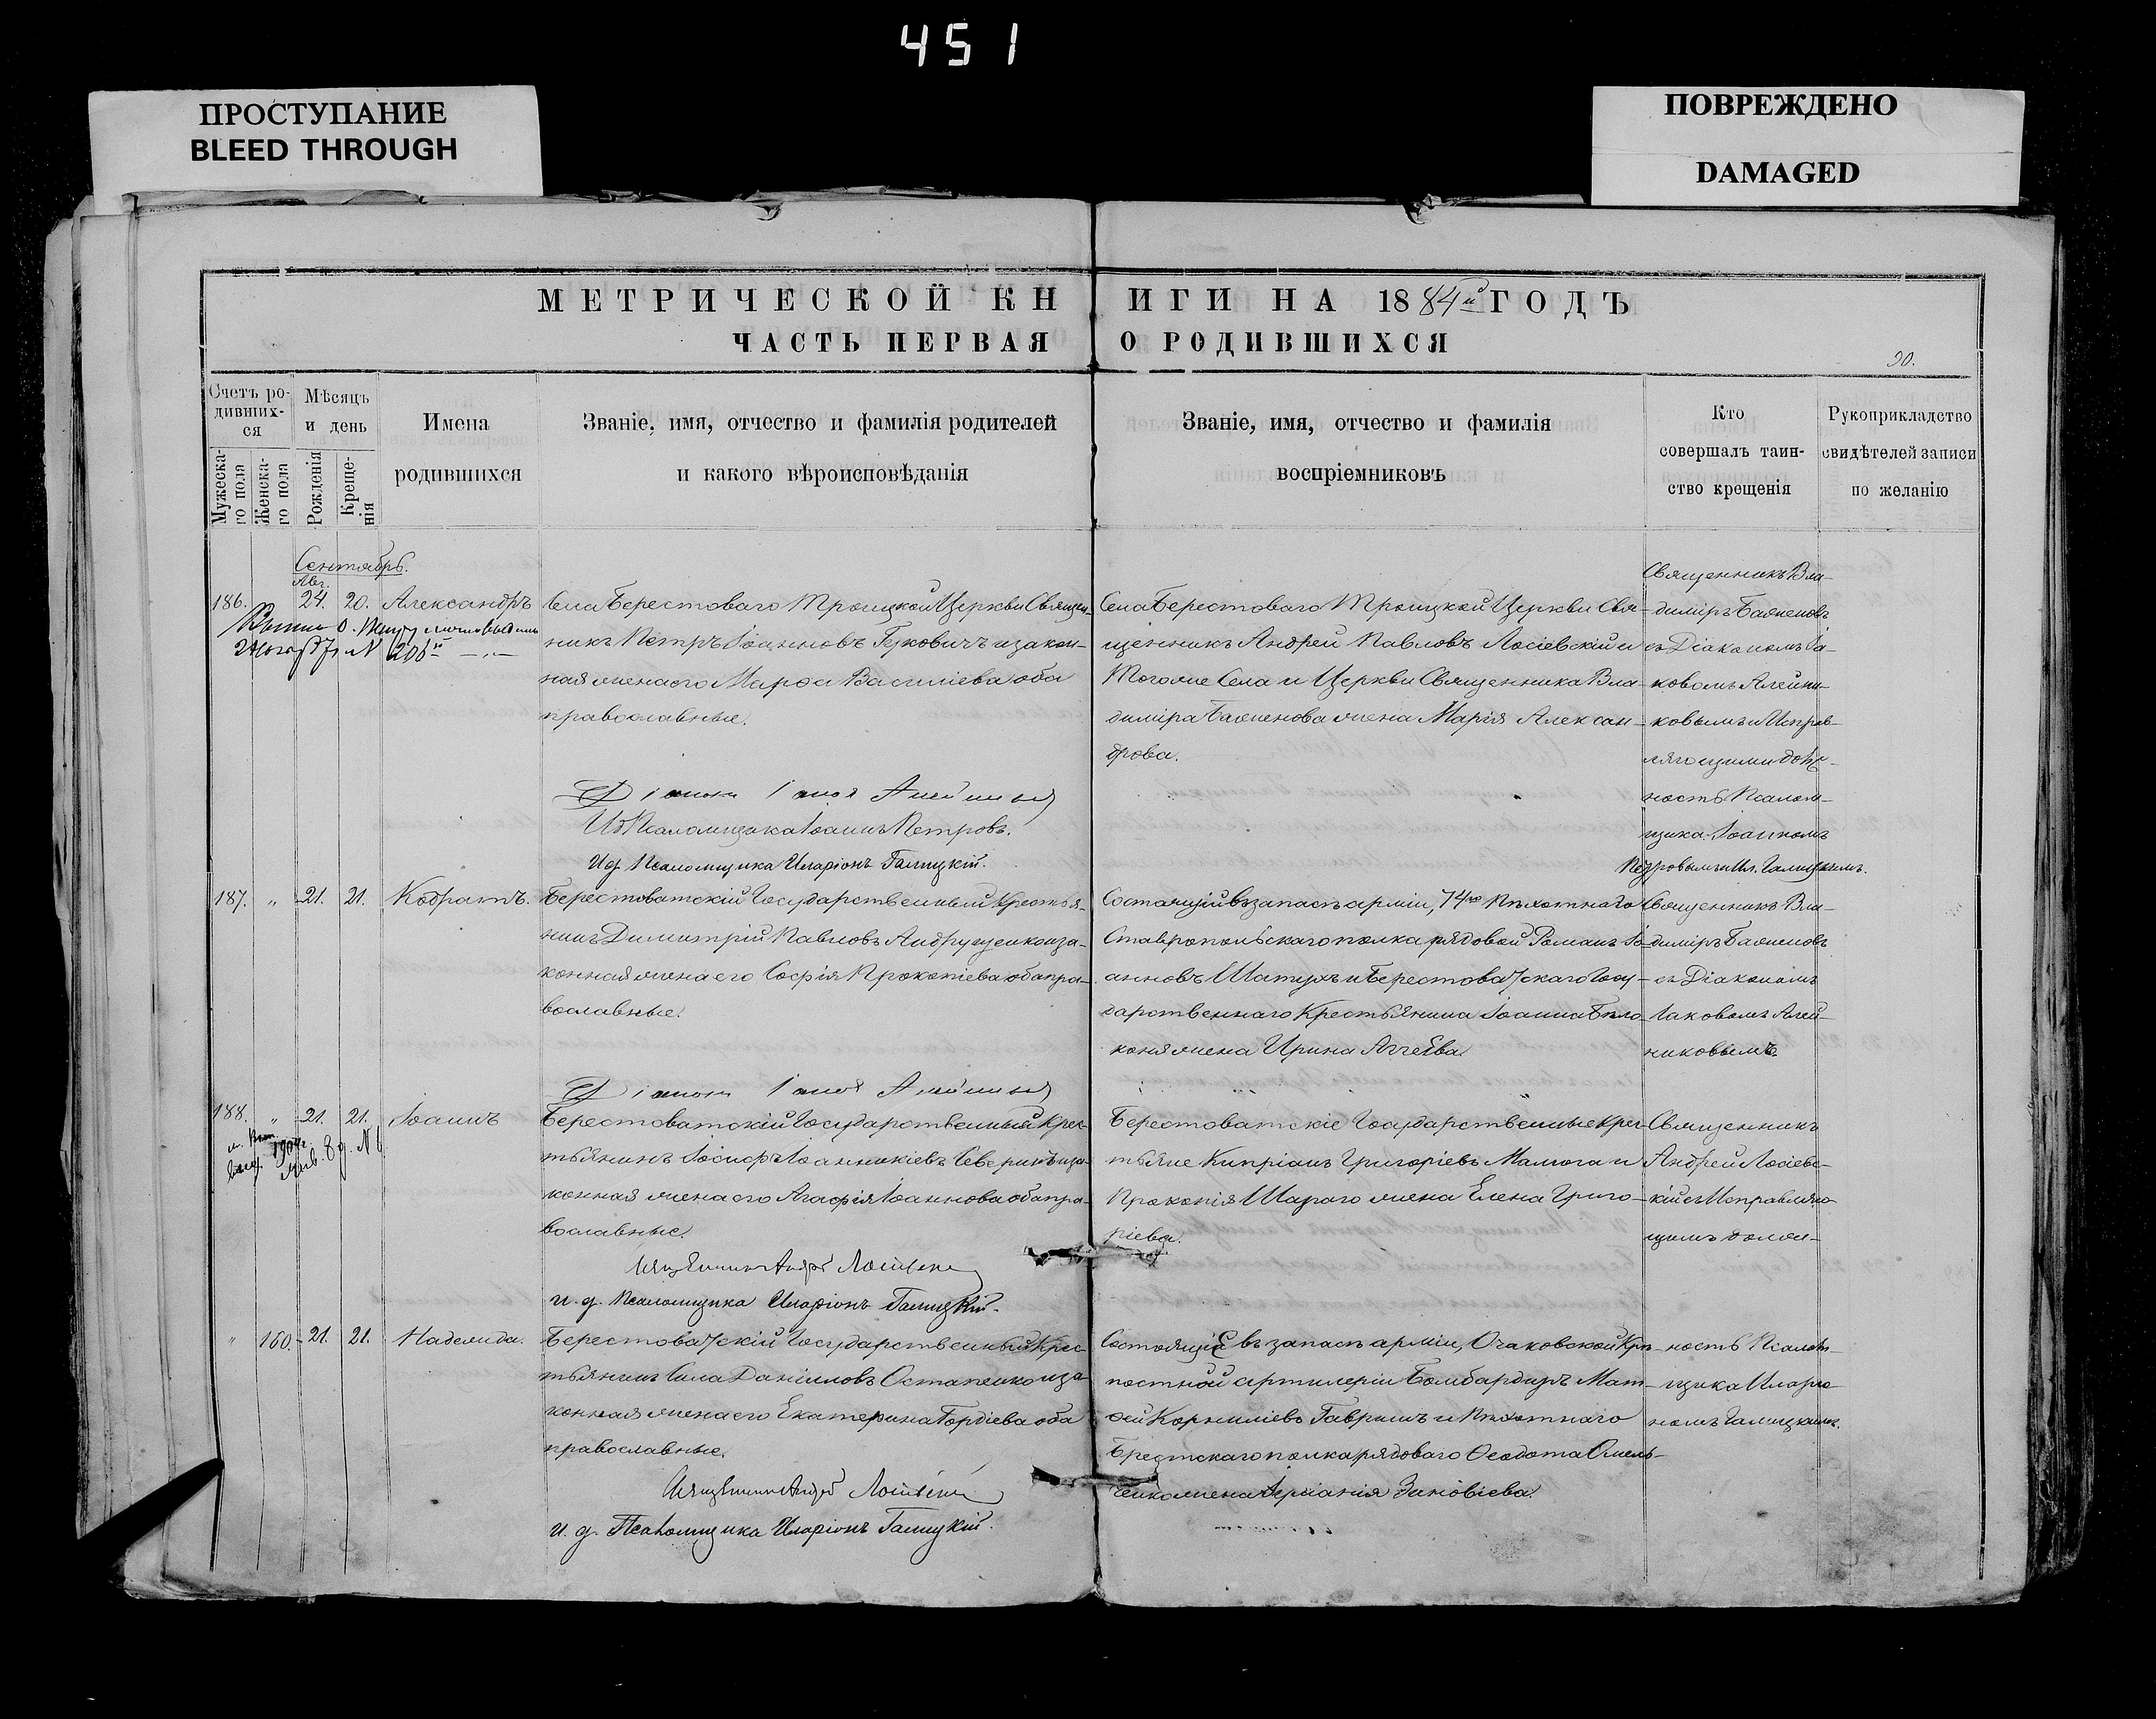 451
ПРОСТУПАНИЕ
BLEED THROUGH
ПОВРЕЖДЕНО
DAMAGED
МЕТРИЧЕСКОЙ КНИГИ НА 1884й ГОДЪ
ЧАСТЬ ПЕРВАЯ О РОДИВШИХСЯ
90.
Счетъ ро-
дивших-
ся
Мужеска-
го пола
Женска-
го пола
Мѣсяцъ
и день
Рожденія
Креще-
нія
Имена
родившихся
Званіе, имя, отчество и фамилія родителей
и какого вѣроисповѣданія
Званіе, имя, отчество и фамилія
воспріемниковъ
Кто
совершалъ таин-
ство крещенія
Рукоприкладство
свидѣтелей записи
по желанію
Сентябрь.
Авг.
186. 24. 20. Александръ
Села Берестоваго Троицкой Церкви Священ-
никъ Петръ Іоанновъ Геркович и закон-
ная жена его Марѳа Василіева оба
православные.
Діаконъ Іаковъ Алейниковъ
ИД Псаломщика Іоаннъ Петровъ.
И.д. Псаломщика Иларіонъ Галицкій.
Села Берестоваго Троицкой Церкви Свя-
щенникъ Андрей Павловъ Лосіевскій и
Тогоже Села и Церкви Священника Вла-
диміра Баженова жена Марія Алексан-
дрова.
Священникъ Вла-
диміръ Баженовъ
съ Діакономъ Іа-
ковомъ Алейни-
ковымъ и Исправ-
ляющими долж-
ность Псалом-
щика Іоанномъ
Петровымъ и Ил. Галицкимъ.
187. „ 21. 21. Кодратъ.
Берестоватскій Государственный Крестья-
нинъ Димитрій Павловъ Андрущенко и за-
конная жена его Софія Прокопіева оба пра-
вославные.
Діаконъ Іаковъ Алейниковъ
Состоящій въ запасѣ арміи, 74го Пѣхотнаго
Ставропольскаго полка рядовой Романъ Іо-
анновъ Шатухъ и Берестоватскаго Госу-
дарственнаго Крестьянина Іоанна Бѣло-
коня жена Ирина Аггеева.
Священникъ Вла-
диміръ Баженовъ
съ Діакономъ
Іаковомъ Алей-
никовымъ.
188. „ 21. 21. Іоаннъ
Берестоватскій Государственный Крес-
тьянинъ Іосифъ Іоанникіевъ Северинъ и за-
конная жена его Агафія Іоаннова оба пра-
вославные.
Священникъ Андрей Лосіевскій
и.д. Псаломщика Иларіонъ Галицкій.
Берестоватскіе Государственные Крес-
тьяне Кипріанъ Григоріевъ Малюга и
Прокопія Шараго жена Елена Григо-
ріева.
Священникъ
Андрей Лосіевс-
кій съ Исправляю-
щимъ долж-
„ 160. 21. 21. Надежда.
Берестоватскій Государственный Крес-
тьянинъ Сила Даніиловъ Остапенко и за-
конная жена его Екатерина Гордіева оба
православные.
Священникъ Андрей Лосіевскій
и.д. Псаломщика Иларіонъ Галицкій.
Состоящіе въ запасѣ арміи, Очаковской Крѣ-
постной артилеріи Бомбардиръ Мат-
ѳей Корниліевъ Гавришъ и Пѣхотнаго
Брестскаго полка рядоваго Ѳеодота Омель-
ченко жена Зиновіева.
ность Псалом-
щика Иларіо-
номъ Галицкимъ.